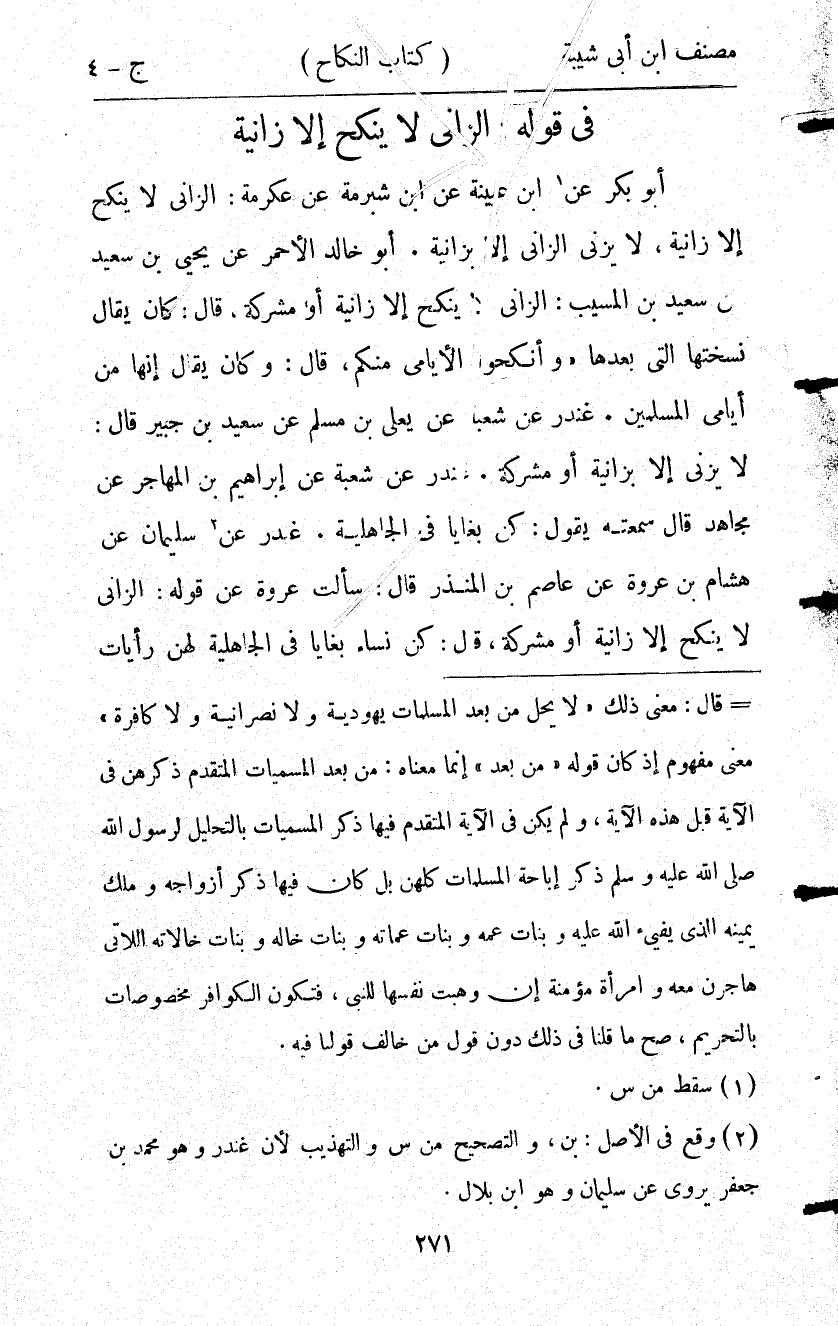 مصنف ابن أبى شيبة ( كتاب النكاح ) ج - ٤
فى قوله : الزانى لا ينكح إلا زانية
أبو بكر عن١ ابن عيينة عن ابن شبرمة عن عكرمة : الزانى لا ينكح
إلا زانية ، لا يزنى الزانى إلا بزانية . أبو خالد الأحمر عن يحيى بن سعيد
سعيد بن المسيب : الزانى لا ينكح إلا زانية أو مشركة ، قال : كان يقال
نسختها التى بعدها « و أنكحوا الأيامى منكم ، قال : و كان يقال إنها من
أيامى المسلمين . غندر عن شعبة عن يعلى بن مسلم عن سعيد بن جبير قال :
لا يزنى إلا بزانية أو مشركة . غندر عن شعبة عن إبراهيم بن المهاجر عن
مجاهد قال سمعته يقول : كن بغايا فى الجاهلية . غندر عن٢ سليمان عن
هشام بن عروة عن عاصم بن المنذر قال : سألت عروة عن قوله : الزانى
لا ينكح إلا زانية أو مشركة ، قال : كن نساء بغايا فى الجاهلية لهن رأيات
= قال : معنى ذلك « لا يحل من بعد المسلمات يهودية و لا نصرانية و لا كافرة »
معنى مفهوم إذ كان قوله « من بعد » إنما معناه : من بعد المسميات المتقدم ذكرهن فى
الآية قبل هذه الآية ، و لم يكن فى الآية المتقدم فيها ذكر المسميات بالتحليل لرسول الله
صلى الله عليه و سلم ذكر إباحة المسلمات كلهن بل كان فيها ذكر أزواجه و ملك
يمينه الذى يفيء الله عليه و بنات عمه و بنات عماته و بنات خاله و بنات خالاته اللاتى
هاجرن معه و امرأة مؤمنة إن وهبت نفسها للنبى ، فتكون الكوافر مخصوصات
بالتحريم ، صح ما قلنا فى ذلك دون قول من خالف قولنا فيه .
(١) سقط من س .
(٢) وقع فى الأصل : بن ، و التصحيح من س و التهذيب لأن غندر و هو محمد بن
جعفر يروى عن سليمان و هو ابن بلال .
٢٧١